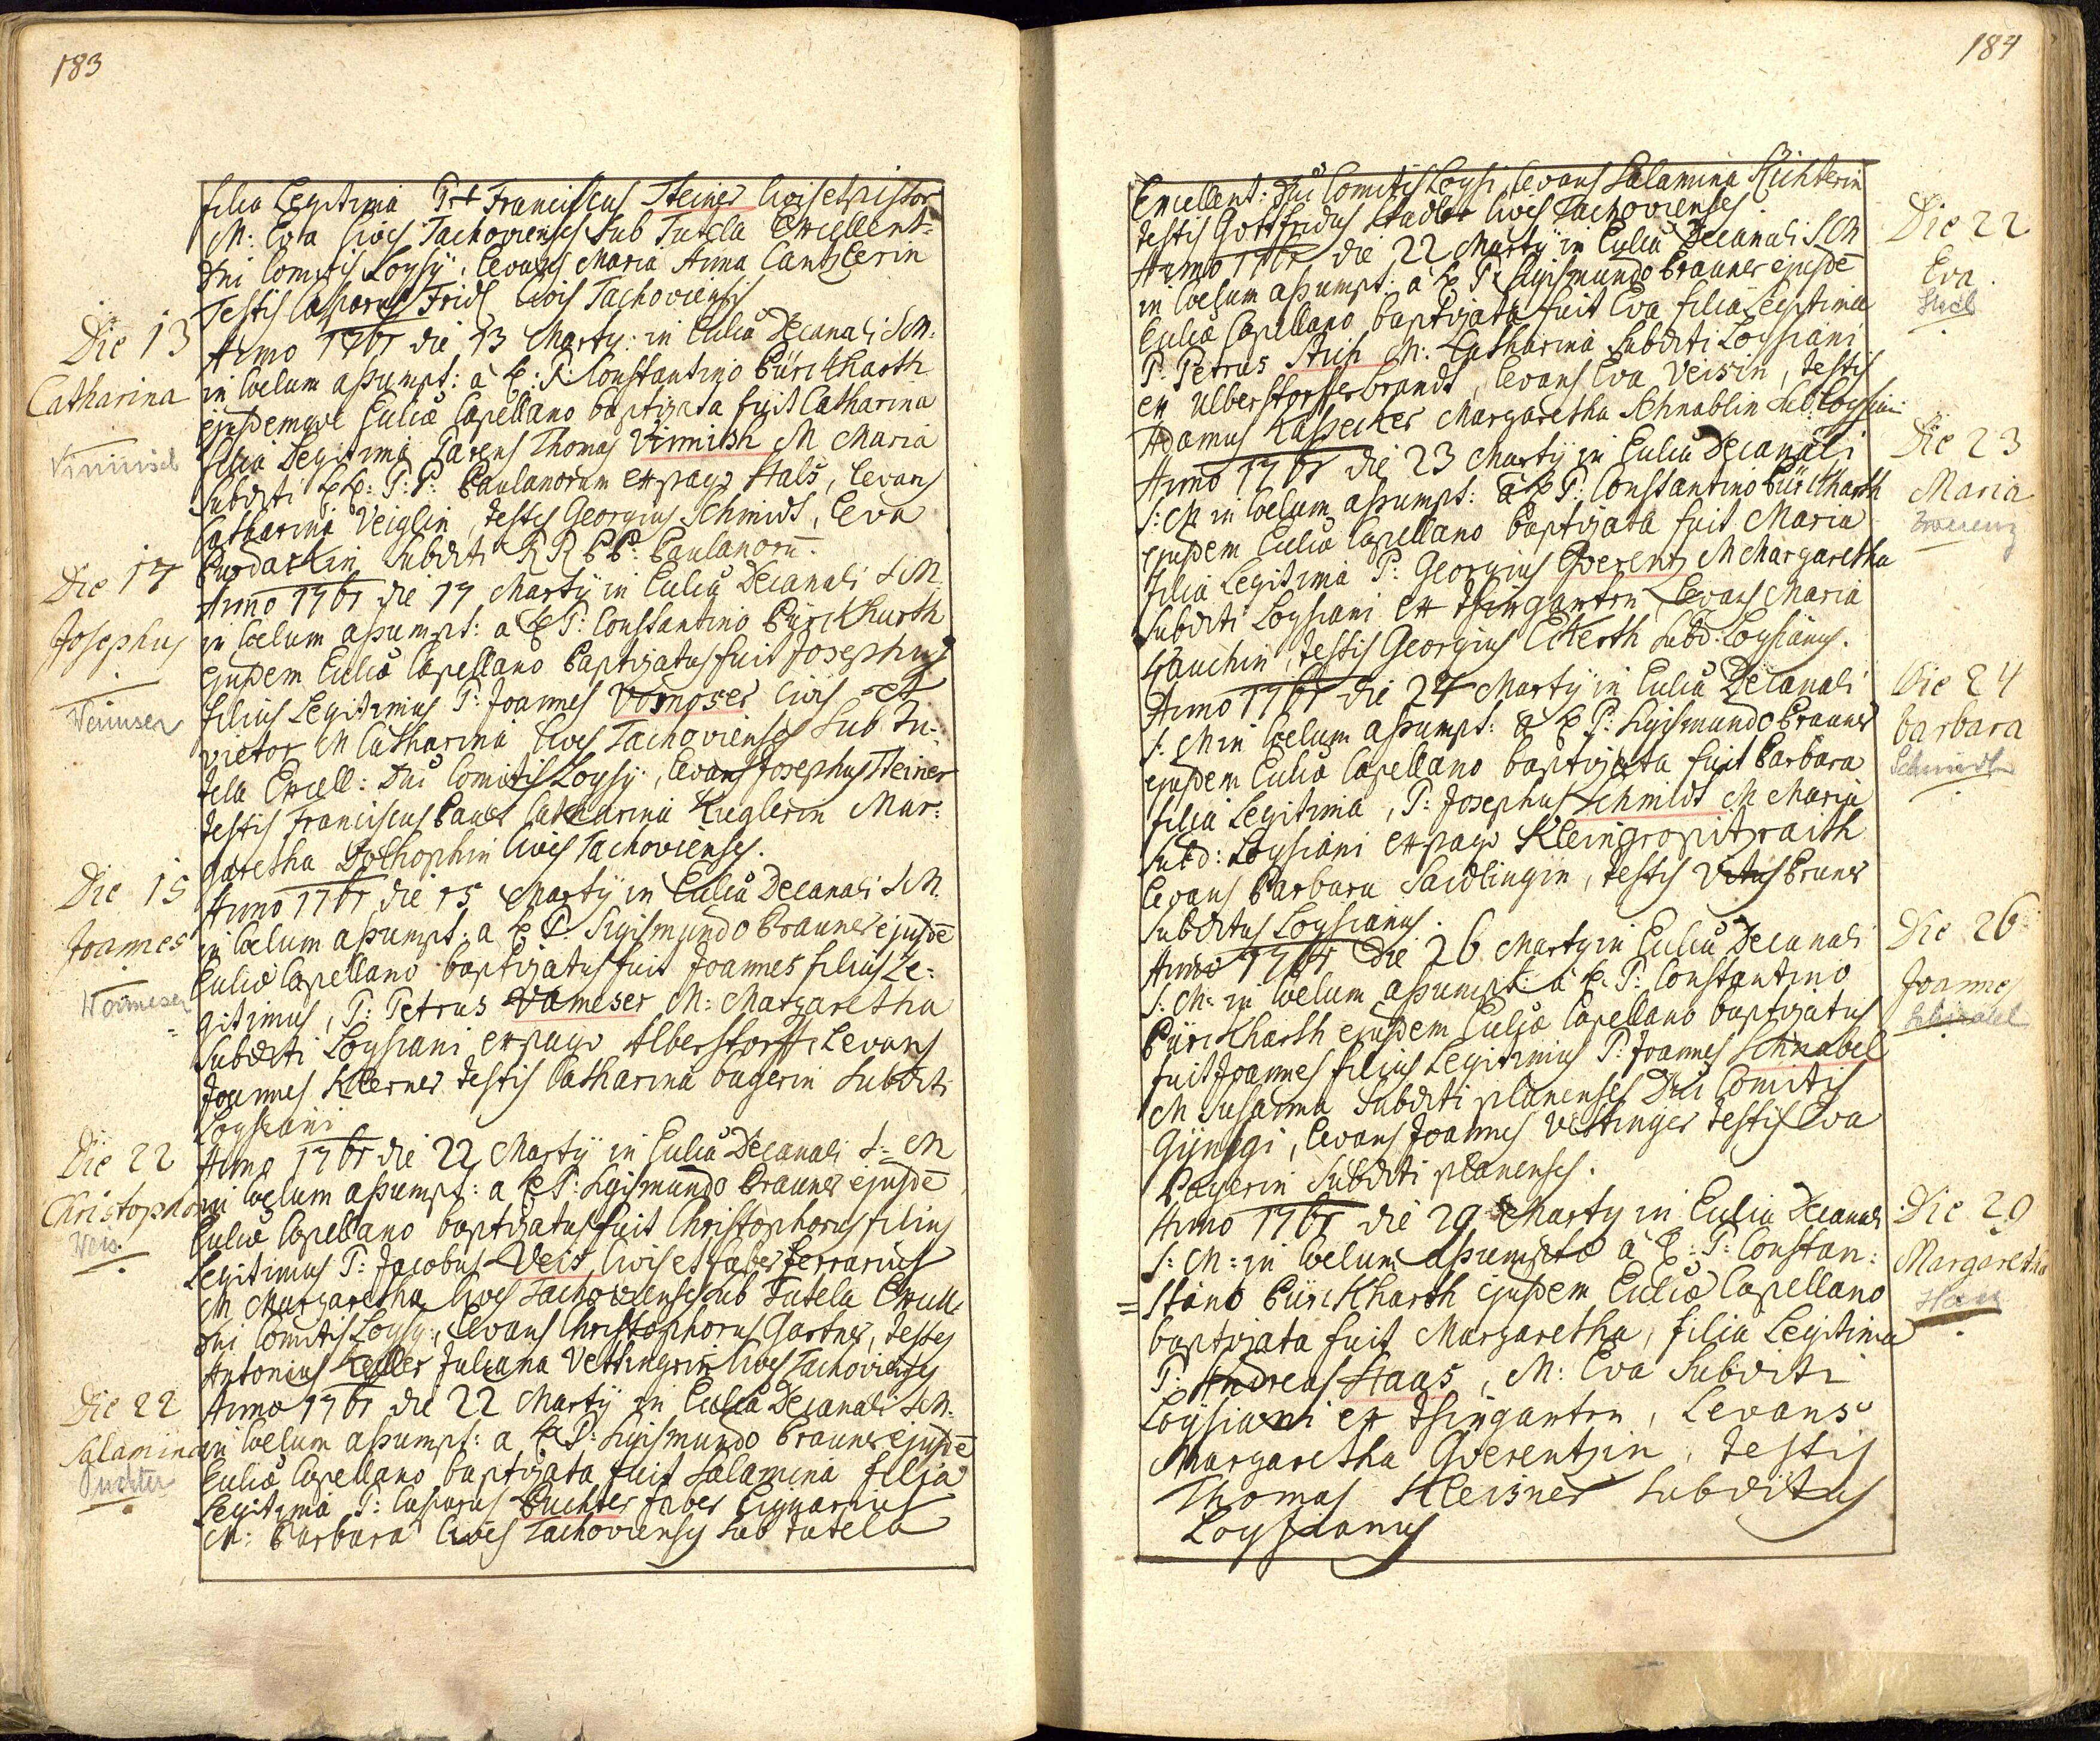 183
filia Legitima Pr Franciscus Steiner Civis et Pistor
M: Eva Cives Tachovienses Sub Tutela Excellent=
Dni Comitis Losÿ, Levans Maria Anna Cantzlerin
Testis Casparus Fridl Civis Tachoviensis
Die 13
Catharina
Anno 1761 die 13 Martÿ: in Eccliâ Decanali S M:
in Coelum assumpt: à R: P: Constantino Bürckharth
ejusdemque Eccliæ Capellano baptizata fuit Catharina
filia Legitima Parens Thomas Virmisch M Maria
Subditi RR: P: P: Paulanorum ex pago Hals, Levans
Catharina Veiglin, testes Georgius Schmidt, Eva
Subditi R R P P: Paulanorū.
Die 14
Josephus
Anno 1761 die 14 Martÿ in Eccliâ Decanali S M
in Coelum assumpt: a R P: Constantino Bürckhurth
ejusdem Eccliæ Capellano baptizatus fuit Josephus
filius Legitimus P: Joannes Vormoser Civis et
vietor M Catharina Cives Tachovienses Sub Tu:
tela Excell: Dni Comitis Losÿ, Levans Josephus Steiner
testis Franciscus Bauer Catharina Kuglerin Mar:
garetha Cives Tachovienses.
Die 15
Joannes
Anno 1761 die 15 Martÿ in Eccliâ Decanali S M
in Coelum assumpt: a R P: Sigismundo Brauner ejusdē
Eccliæ Capellano baptizatus fuit Joannes filius Le:
gitimus, P: Petrus Vameser M: Margaretha
Subditi Losÿiani ex pago Alberstorff, Levans
Joannes Klerner testis Catharina bagerin Subditi
Losÿiani
Die 22
Christophorus
Veis.
Anno 1761 die 22 Martÿ in Eccliâ Decanali S: M
in Coelum assumpt: a R P: Sigismundo Brauner ejusdē
Eccliæ Capellano baptizatus fuit Christophorus filius
Legitimus P: Jacobus Veis, Civis et faber ferrarius
M Margaretha Cives Tachovienses Sub Tutela Excell:
Dni Comitis Losÿ, Levans Christophorus Gartner, testes
Antonius Keller Juliana Vettingerin Cives Tachovienses
Die 22
Salamina
Anno 1761 die 22 Martÿ in Eccliâ Decanali S M:
in Coelum assumpt: a R P: Sigismundo Brauner ejusdē
Eccliæ Capellano baptizata fuit Salamina filia
Legitima P: Casparus Puchter faber Lignarius
M: Barbara Cives Tachovienses Sub tutela
184
Excellent: Dni Comitis Losÿ, Levans Salamina Richterin
testis Gottfridus Stadler Cives Tachovienses
Die 22
Eva
Anno 1761 die 22 Martÿ in Eccliâ Decanali S M
in Coelum assumpt: à R P: Sigismundo Brauner ejusdē
Eccliæ Capellano baptizata fuit Eva filia Legitima
P: Petrus Stich M: Catharina Subditi Losÿiani
ex Ulberstorfferbrandt, Levans Eva Veisin, testis
Adamus Kassecker Margaretha Schnablin Sub: Losÿiani
Die 23
Maria
Anno 1761 die 23 Martÿ in Eccliâ Decanali
S: M in Coelum assumpt: à R P: Constantino Bürckharth
ejusdem Eccliæ Capellano baptizata fuit Maria
filia Legitima P: Georgius Qverentz M Margaretha
Subditi Losÿiani ex thirgarten, Levans Maria
testis Georgius Ekerth Subd: Losÿianus.
Die 24
barbara
Schmidt
Anno 1761 die 24 Martÿ in Eccliâ Decanali
S: M in Coelum assumpt: à R P: Sigismundo Brauner
ejusdem Eccliæ Capellano baptizata fuit Barbara
filia Legitima, P: Josephus Schmidt M Maria
Subd: Losÿiani ex pago Kleingropitzraith
Levans Barbara Saidlingin, testis Vitus Bruner
Subditus Losÿianus.
Die 26
Joannes
Anno 1761 Die 26 Martÿ in Eccliâ Decanali
S: M: in Coelum assumpt: à R: P: Constantino
Bürckharth ejusdem Eccliæ Capellano baptizatus
fuit Joannes filius Legitimus P: Joannes Schnabel
M Susanna Subditi planenses Dni Comitis
Levans Joannes Vettinger testis Eva
Subditi planenses.
Die 29
Margaretha
Anno 1761 die 29 Martÿ in Eccliâ Decanali
S: M: in Coelum assumptæ à R: P: Constan:
tino Bürckharth ejusdem Eccliæ Capellano
baptizata fuit Margaretha, filia Legitima
P: Andreas Haas, M: Eva Subditi
Losÿiani ex thirgarten, Levans
Margaretha Qverentzin, testis
Thomas Kleisner Subditus
Losÿianus